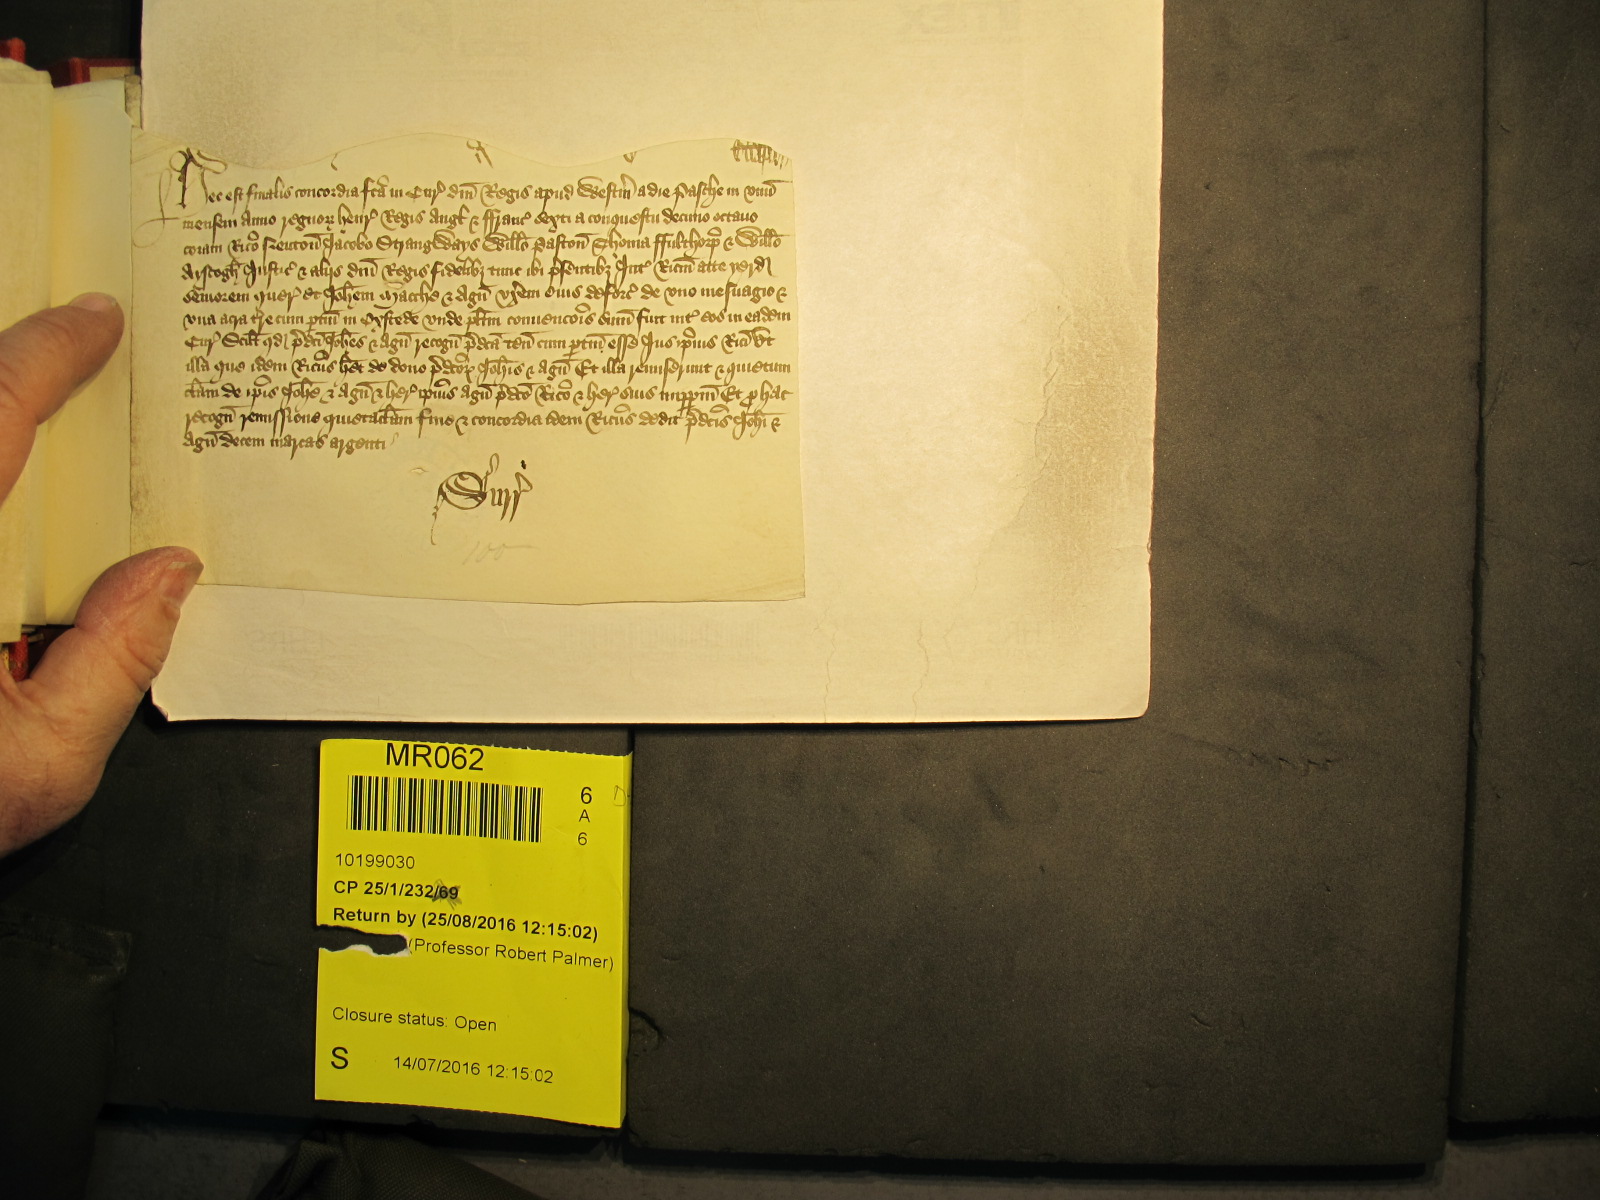 Hec est finalis concordia fca in Cur dni Regis apud Westm a die Pasche in unu
mensem Anno regnor Henr Regis Angl & Franc sexti a conquestu decimo octavo
coram Rico Neuton Jacobo Strangways Willo Paston Thoma Fulthorp & Willo
Ayscogh Justic & aliis dni Regis fidelibz tunc ibi psentibz Int Ricm atte
Seniorem quer Et Johem Macche & Agn uxem eius deforc de uno mesuagio &
una acra tre cum ptin in Oxstede unde plitm convencois sum fuit int eos in eadm
Cur Scilt qd pdci Johes & Agn recogn pdca ten cum ptin esse Jus ipius Rici Ut
illa que idem Ricus het de dono pdcor Johis & Agn Et illa remiserunt & quietum
clam de ipis Johe & Agn & her ipius Agn pdco Rico & her suis imppm Et p hac
recogn remissione quietaclam fine & concordia idem Ricus dedit pdcis Johi &
Agn decem marcas argenti
Surr
100
MR062
6
A
6
10199030
CP 25/1/232/69
Return by (25/08/2016 12:15:02)
(Professor Robert Palmer)
Closure status: Open
S 14/07/2016 12:15:02